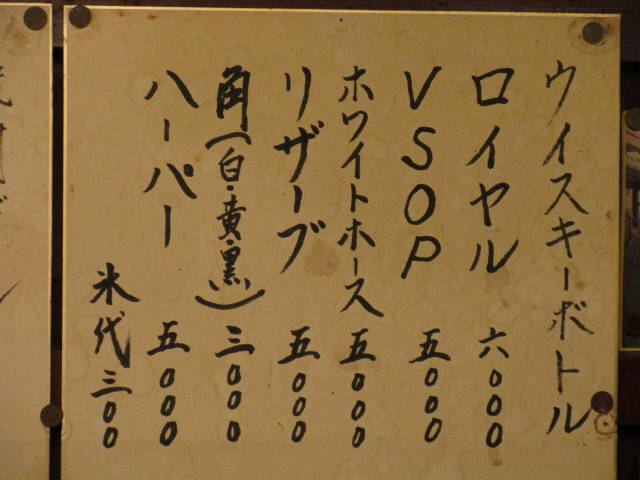 ウイスキーボトル
ロイヤル 六〇〇〇
VSOP 五〇〇〇
ホワイトホース 五〇〇〇
リザーブ 五〇〇〇
角(白・黄・黒) 三〇〇〇
ハーパー 五〇〇〇
氷代 三〇〇